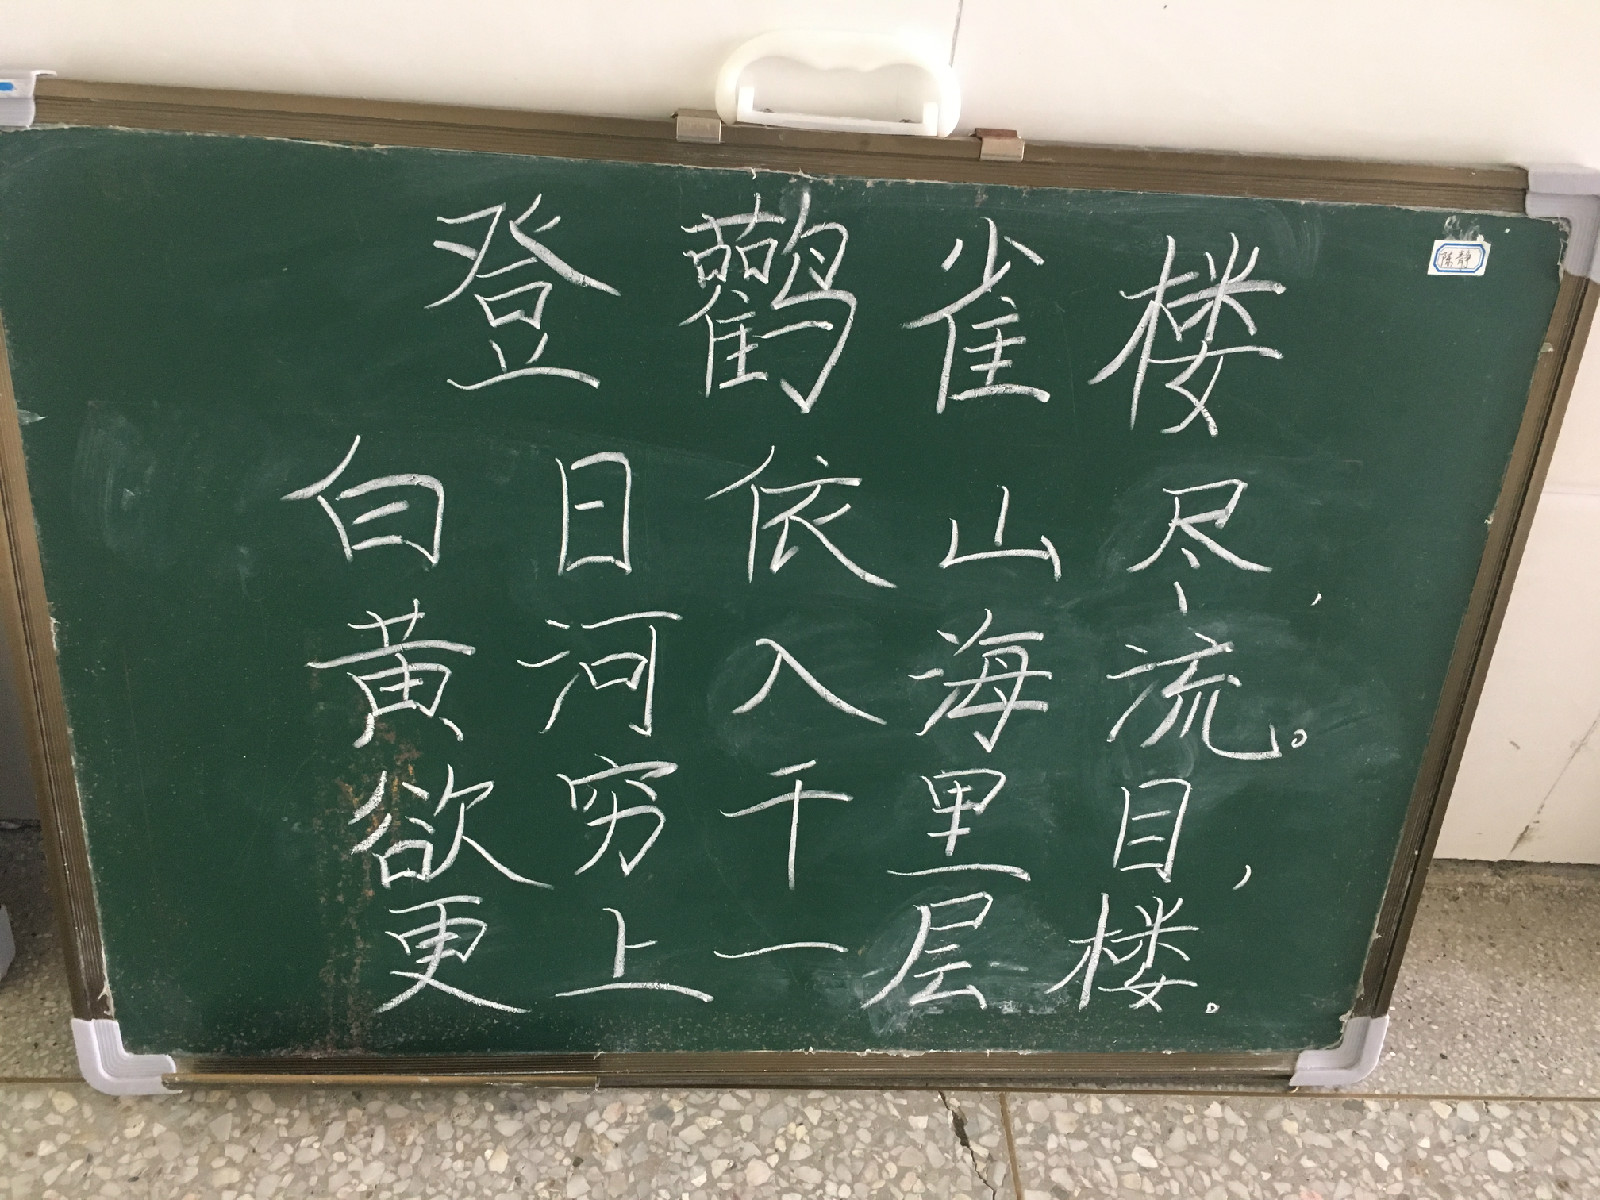 登鹳雀楼
陈静
白日依山尽,
黄河入海流。
欲穷千里目,
更上一层楼。